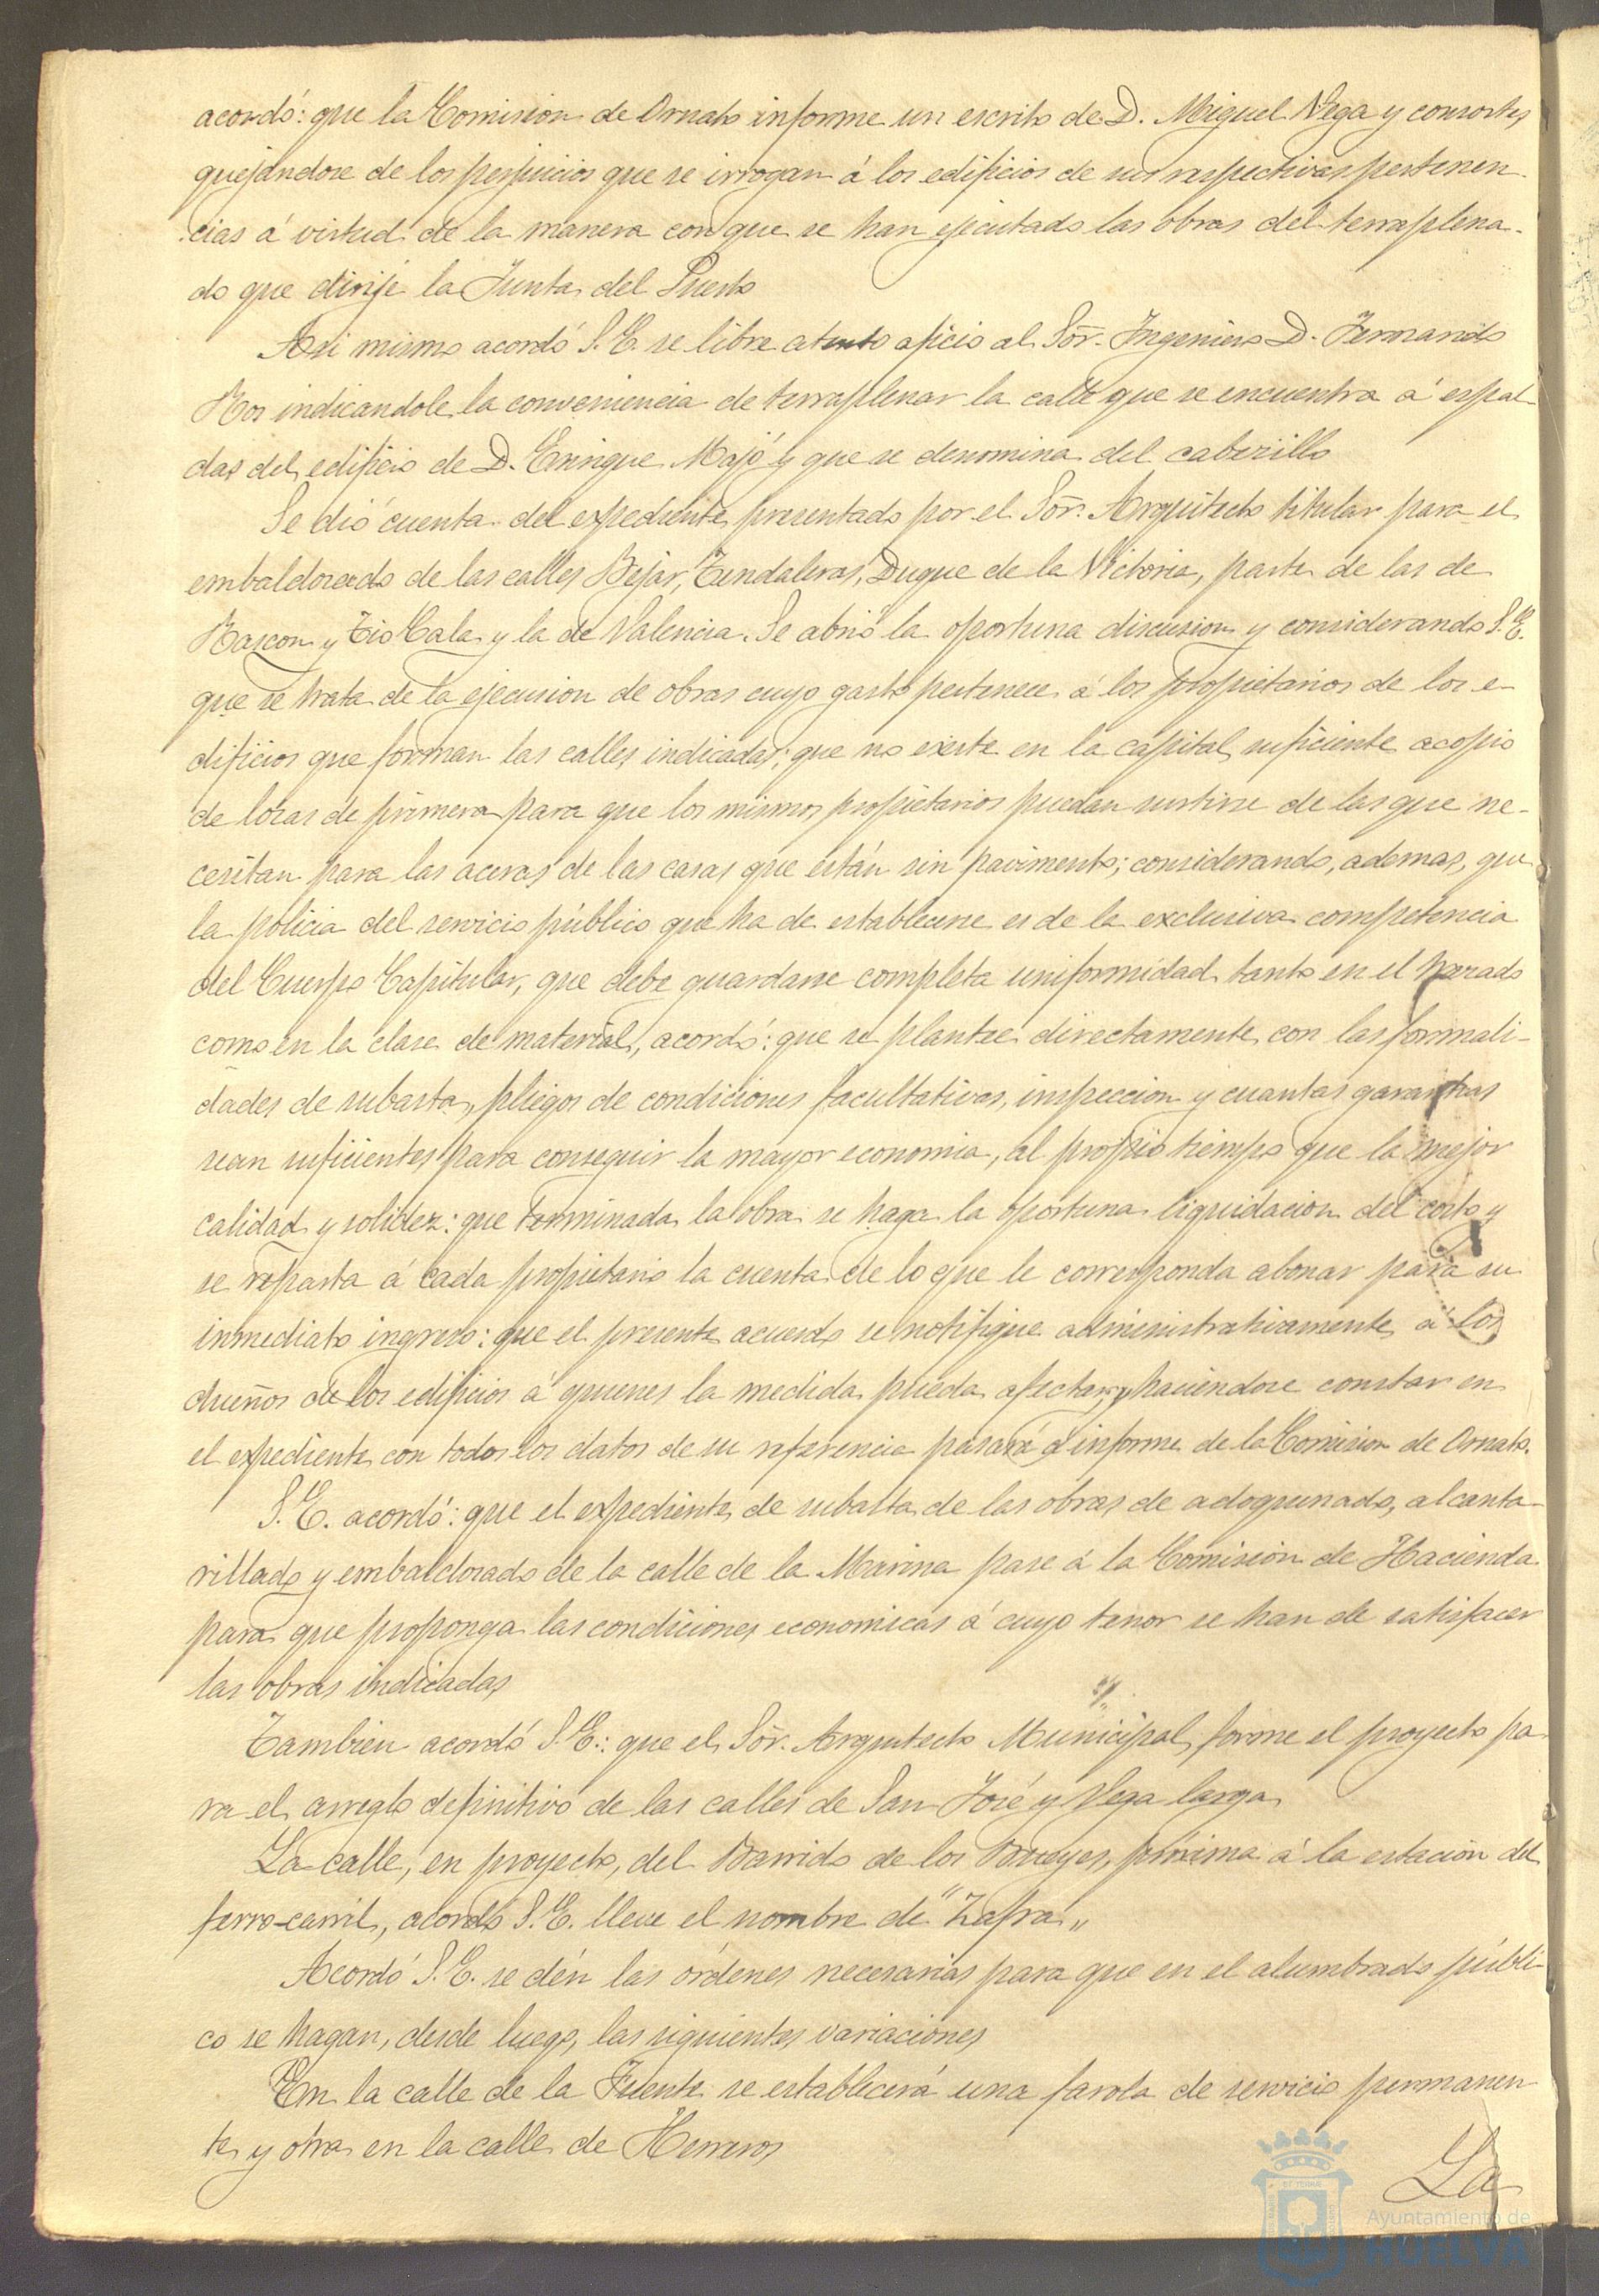 acordó: que la Comision de Ornato informe un escrito de D. Miguel Vega y consortes,
quejándose de los perjuicios que se irrogan á los edificios de sus respectivas pertenen-
cias á virtud de la manera con que se han ejecutado las obras del terraplena-
do que dirije la Junta del Puerto
Asi mismo acordó S.E. se libre atento oficio al Sor. Ingeniero D. Fernando
Ros indicandole la conveniencia de terraplenar la calle que se encuentra á espal-
das del edificio de D. Enrique Majó y que se denomina del cabezillo
Se dió cuenta del expediente presentado por el Sor. Arquitecto titular para el
embaldosado de las calles Bejar, Tendaleras, Duque de la Victoria, parte de las de
Rascon y Tio Cala y la de Valencia. Se abrió la oportuna discusion y considerando S.E.
que se trata de la ejecusion de obras cuyo gasto pertenece á los propietarios de los e-
dificios que forman las calles indicadas; que no existe en la capital suficiente acopio
de lozas de primera para que los mismos propietarios puedan surtirse de las que ne-
cesitan para las aceras de las casas que están sin pavimento; considerando, ademas, que
la policia del servicio público que ha de establecerse es de la exclusiva competencia
del Cuerpo Capitular, que debe guardarse completa uniformidad tanto en el trazado
como en la clase de material, acordó: que se plantee directamente con las formali-
dades de subasta, pliegos de condiciones facultativas, inspeccion y cuantas garantias
sean suficientes para conseguir la mayor economia, al propio tiempo que la mejor
calidad y solidez: que terminada la obra se haga la oportuna liquidacion del costo y
se reparta á cada propietario la cuenta de lo que le corresponda abonar para su
inmediato ingreso: que el presente acuerdo se notifique administrativamente á los
dueños de los edificios á quienes la medida pueda afectar, y haciendose constar en
el expediente con todos los datos de su referencia pasará á informe de la Comision de Ornato.
S.E. acordó: que el expediente de subasta de las obras de adoquinado, alcanta-
rillado y embaldosado de la calle de la Marina pase á la Comisión de Hacienda
para que proponga las condiciones economicas á cuyo tenor se han de satisfacer
las obras indicadas
Tambien acordó S.E.: que el Sor. Arquitecto Municipal, forme el proyecto pa-
ra el arreglo definitivo de las calles de San José y Vega larga
La calle, en proyecto, del Barrido de los Bueyes, próxima á la estación del
ferro-carril, acordó S.E. lleve el nombre de "Zafra"
Acordó S.E. se dén las órdenes necesarias para que en el alumbrado públi-
co se hagan, desde luego, las siguientes variaciones
En la calle de la Fuente se establecerá una farola de servicio permanen-
te y otra en la calle de Herreros
La
Ayuntamiento de
HUELVA